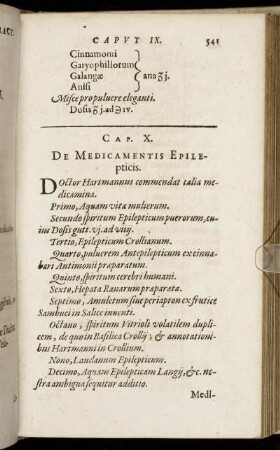 CAPVT IX. 541
Cinnamomi
Garyophillorum
Galangæ } ana ʒ j.
Anisi
Misce pro pulvere eleganti.
Dosis ʒ j. ad ℈ iv.
CAP. X.
DE MEDICAMENTIS EPILE-
pticis.
Doctor Hartmannus commendat talia me-
dicamina.
Primo, Aquam vitæ mulierum.
Secundo spiritum Epilepticum puerorum, cu-
ius Dosis gutt. vj. ad viij.
Tertio, Epilepticum Crollianum.
Quarto, pulverem Antepilepticum ex cinna-
bari Antimonii præparatum.
Quinto, spiritum cerebri humani.
Sexto, Hepata Ranarum præparata.
Septimo, Amuletum siue periapton ex frutice
Sambuci in Salice inuenti.
Octauo, spiritum Vitrioli volatilem dupli-
cem, de quo in Basilica Crollij; & annotationi-
bus Hartmanni in Crollium.
Nono, Laudanum Epilepticum.
Decimo, Aquam Epilepticam Langij, &c. ne-
stra ambigua sequitur additio.
Medi-